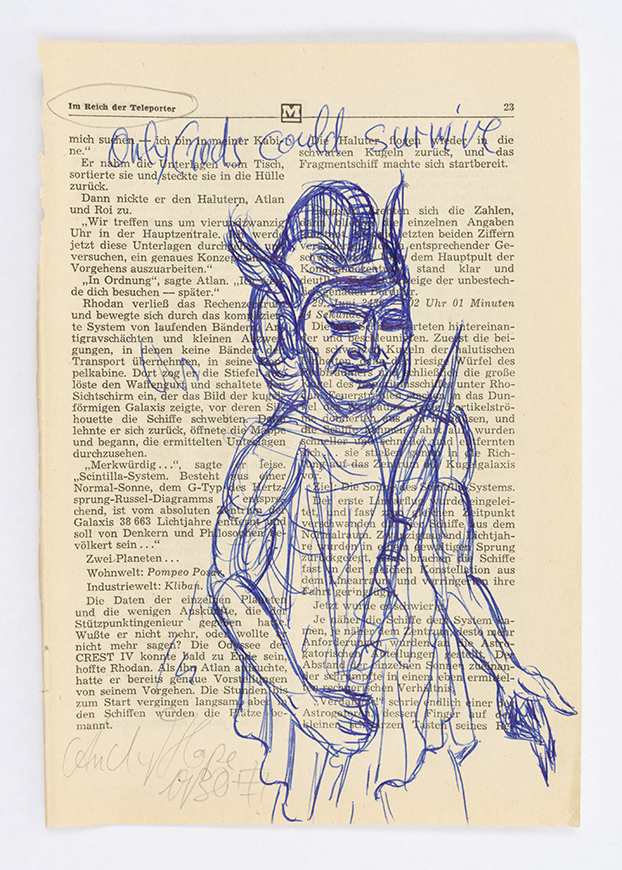 Im Reich der Teleporter
M
23
only Gods could survive
mich suchen – ich bin in meiner Kabi-
ne.“
Er nahm die Unterlagen vom Tisch,
sortierte sie und steckte sie in die Hülle
zurück.
Dann nickte er den Halutern, Atlan
und Roi zu.
„Wir treffen uns um vierundzwanzig
Uhr in der Hauptzentrale. werde
jetzt diese Unterlagen
versuchen, ein genaues
Vorgehens auszuarbeiten.“
„In Ordnung“, sagte Atlan.
de dich besuchen — später.“
Rhodan verließ das Rechenzentrum
und bewegte sich durch das
te System von laufenden Bändern,
tigravschächten und kleinen
gungen, in denen keine Bänder
Transport übernehmen, in seine
pelkabine. Dort zog er die Stiefel
löste den Waffengurt und schaltete
Sichtschirm ein, der das Bild der
förmigen Galaxis zeigte, vor deren
houette die Schiffe schwebten. Dann
lehnte er sich zurück, öffnete die Mappe
und begann, die ermittelten Unterlagen
durchzusehen.
„Merkwürdig ...“, sagte er leise.
„Scintilla-System. Besteht aus einer
Normal-Sonne, dem G-Typ des Hertz-
sprung-Russel-Diagramms
chend, ist vom absoluten Zentrum der
Galaxis 38 663 Lichtjahre entfernt und
soll von Denkern und Philosophen be-
völkert sein ...“
Zwei Planeten ...
Wohnwelt: Pompeo
Industriewelt: Kliban.
Die Daten der einzelnen Planeten
und die wenigen Auskünfte, die der
Stützpunktingenieur gegeben hatte.
Wußte er nicht mehr, oder wollte er
nicht mehr sagen? Die Odyssee der
CREST IV konnte bald zu Ende sein,
hoffte Rhodan. Als ihn Atlan aufsuchte,
hatte er bereits genaue Vorstellungen
von seinem Vorgehen. Die Stunden bis
zum Start vergingen langsam, aber in
den Schiffen wurden die Plätze be-
mannt.
Die Haluter flogen wieder in die
schwarzen Kugeln zurück, und das
Fragmentschiff machte sich startbereit.
*
sich die Zahlen,
die einzelnen Angaben
letzten beiden Ziffern
entsprechender Ge-
dem Hauptpult der
stand klar und
der unbestech-
29. Juni 02 Uhr 01 Minuten
Sekunden
starteten hintereinan-
der und beschleunigten. Zuerst die bei-
den schwarzen Kugeln der halutischen
der riesige Würfel des
die große
unter Rho-
das Dun-
wurden
schneller und schneller und entfernten
sich ... sie stießen genau in die Rich-
tung auf das Zentrum der Kugelgalaxis
vor.
Ziel: Die Sonne des Scintilla-Systems.
Der erste Linearflug wurde eingelei-
tet, und fast zum gleichen Zeitpunkt
verschwanden die Schiffe aus dem
Normalraum.
wurden in einem gewaltigen Sprung
zurückgelegt, brachen die Schiffe
fast in der gleichen Konstellation aus
dem Linearraum und verringerten ihre
Fahrt geringfügig.
Jetzt wurde es schwierig.
Je näher die Schiffe dem System ka-
men, je näher dem Zentrum, desto mehr
Anforderungen wurden an die Astro-
gatorischen Abteilungen gestellt. Der
Abstand der einzelnen Sonnen zueinan-
der
Verhältnis.
„Verdammt“, schrie endlich einer der
Astrogatoren, dessen Finger auf den
kleinen schwarzen Tasten seines
Andy Hope
1930